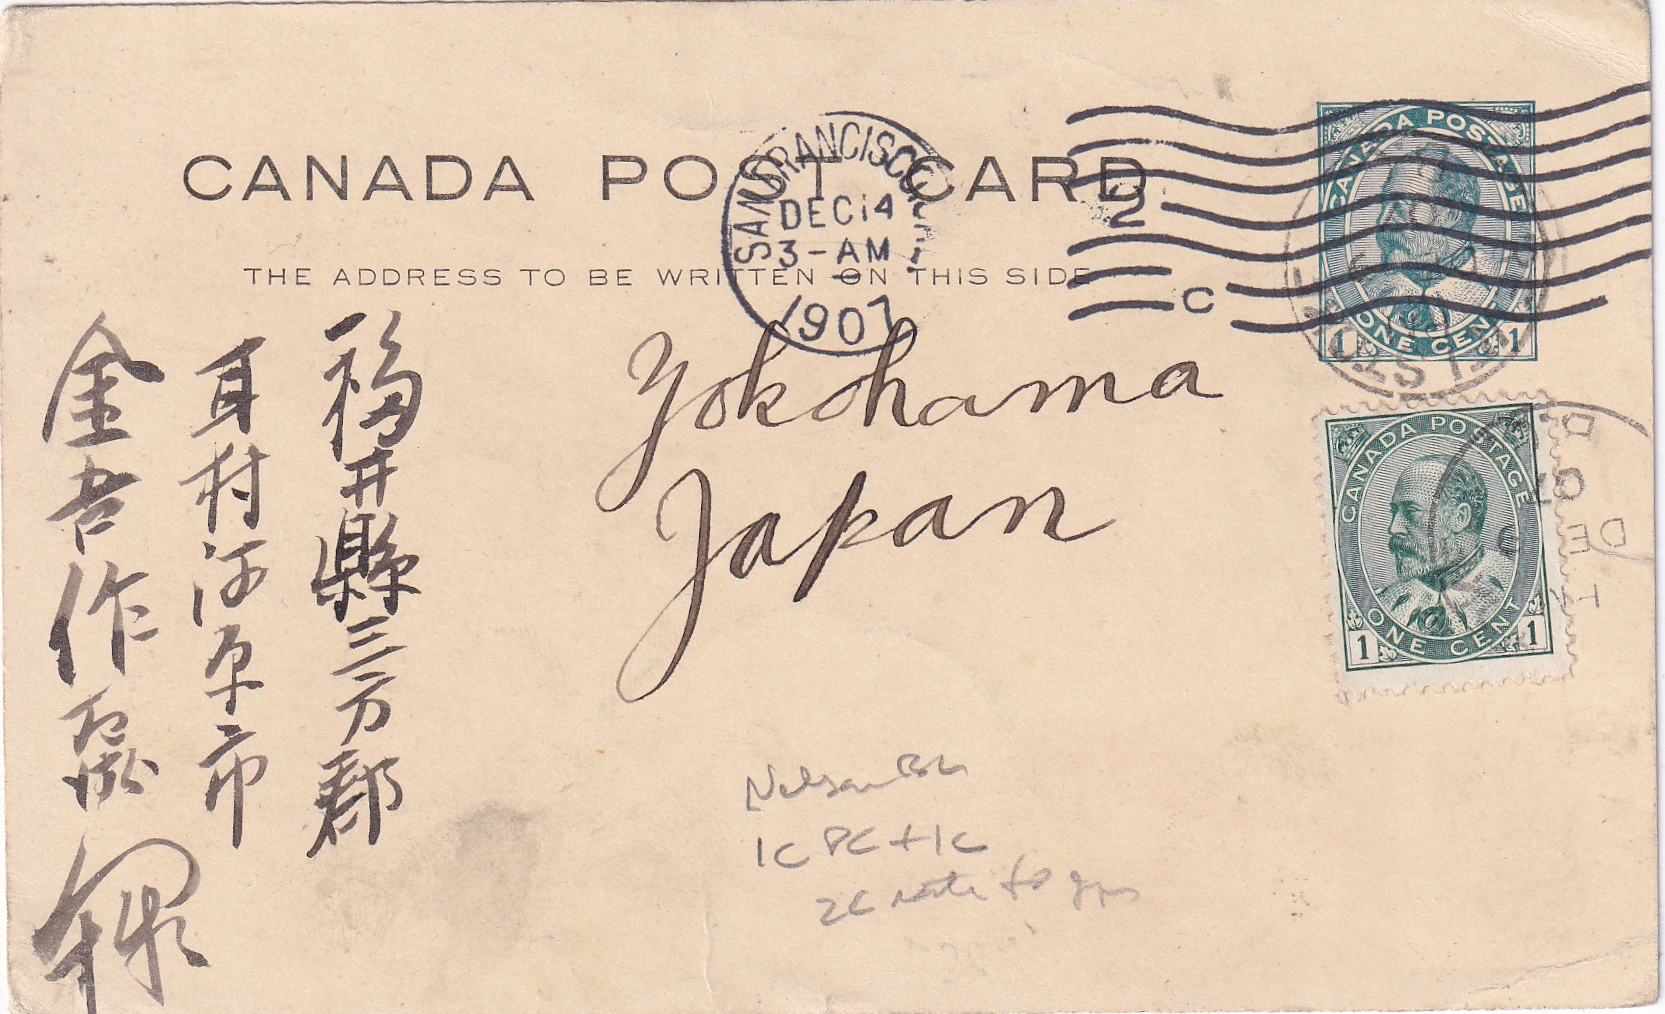 CANADA POST CARD
THE ADDRESS TO BE WRITTEN ON THIS SIDE
SAN FRANCISCO
DEC 14
3-AM
1907
2
C
CANADA POSTAGE
ONE CENT
1 1
CANADA POSTAGE
ONE CENT
1 1
Yokohama
Japan
福井縣三方郡
耳村河原市
金吾作
1c PC + 1c
2c rate to